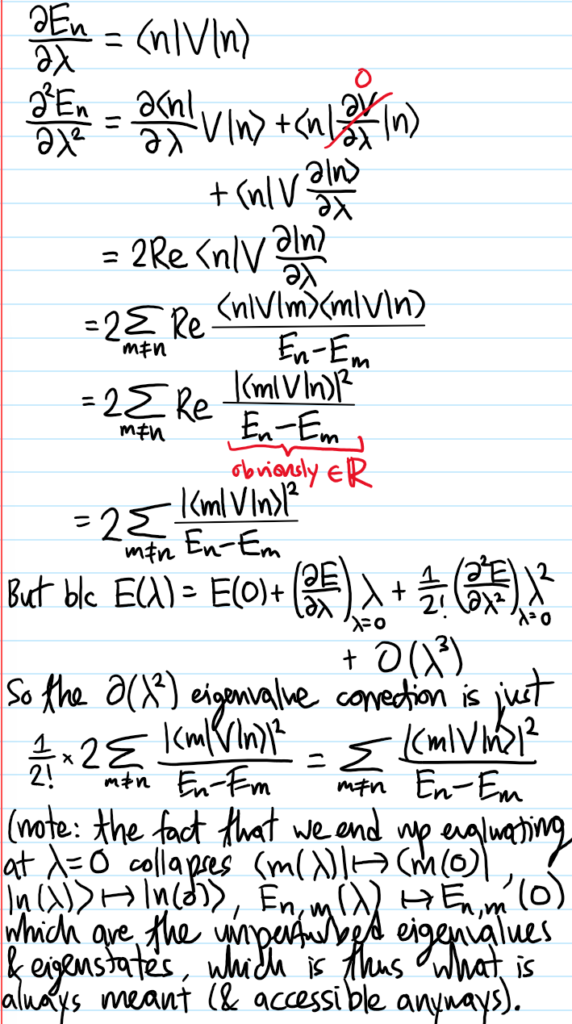 ∂Eₙ/∂λ = ⟨n|V|n⟩
∂²Eₙ/∂λ² = ∂⟨n|/∂λ V|n⟩ + ⟨n|∂V/∂λ|n⟩ 0
+ ⟨n|V ∂|n⟩/∂λ
= 2Re ⟨n|V ∂|n⟩/∂λ
= 2 Σ_{m≠n} Re ⟨n|V|m⟩⟨m|V|n⟩/(Eₙ−Eₘ)
= 2 Σ_{m≠n} Re |⟨m|V|n⟩|²/(Eₙ−Eₘ)
obviously ∈ ℝ
= 2 Σ_{m≠n} |⟨m|V|n⟩|²/(Eₙ−Eₘ)
But b/c E(λ) = E(0) + (∂E/∂λ)_{λ=0} λ + 1/2! (∂²E/∂λ²)_{λ=0} λ²
+ O(λ³)
So the O(λ²) eigenvalue correction is just
1/2! × 2 Σ_{m≠n} |⟨m|V|n⟩|²/(Eₙ−Eₘ) = Σ_{m≠n} |⟨m|V|n⟩|²/(Eₙ−Eₘ)
(note: the fact that we end up evaluating
at λ=0 collapses ⟨m(λ)| ↦ ⟨m(0)|,
|n(λ)⟩ ↦ |n(0)⟩, E_{n,m}(λ) ↦ E_{n,m}(0)
which are the unperturbed eigenvalues
& eigenstates, which is thus what is
always meant (& accessible anyways).